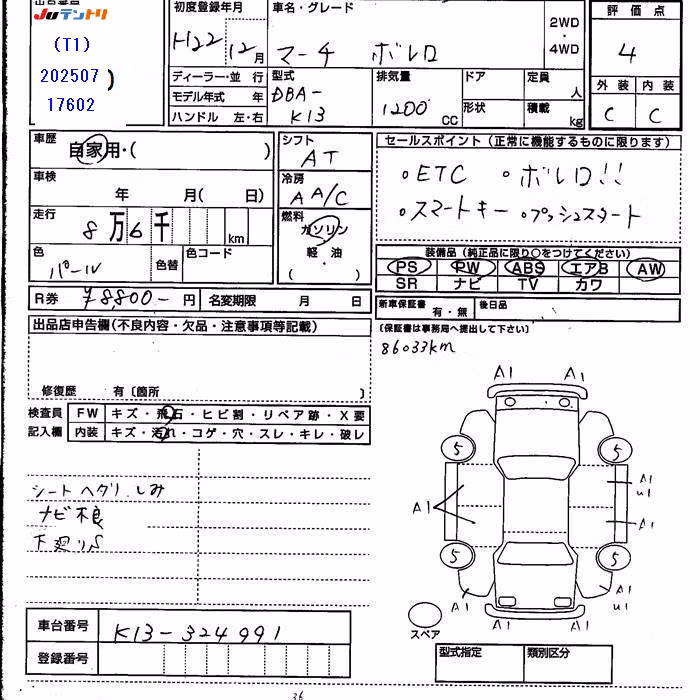 出品番号
JUテントリ
(T1)
202507 )
17602
初度登録年月
H22 12月
車名・グレード
マーチ ボレロ
2WD
・
4WD
評価点
4
外装 内装
C C
ディーラー・並 行
モデル年式 年
ハンドル 左・右
型式
DBA-
K13
排気量
1200 CC
ドア
形状
定員
人
積載
kg
車歴
自家用・( )
車検
年 月( 日)
走行
8万6千 km
色
パール
色替
色コード
シフト
AT
冷房
AA/C
燃料
ガソリン
・
軽 油
( )
セールスポイント (正常に機能するものに限ります)
。ETC 。ボレロ!!
。スマートキー 。プッシュスタート
装備品 (純正品に限り○をつけてください)
PS PW ABS エアB AW
SR ナビ TV カワ
R券 ¥8,800- 円
名変期限 月 日
新車保証書
有・無
後日品
(保証書は事務局へ提出して下さい)
出品店申告欄 (不良内容・欠品・注意事項等記載)
修復歴 有〔箇所 〕
86033km
検査員
記入欄
FW キズ・飛石・ヒビ割・リペア跡・X要
内装 キズ・汚れ・コゲ・穴・スレ・キレ・破レ
シートヘタリ.しみ
ナビ不良
下廻りS
A1 A1
5 5
A1
A1
U1
A1
5 5
A1
A1 A1
A1
U1
スペア
車台番号 K13-324991
登録番号
型式指定 類別区分
36